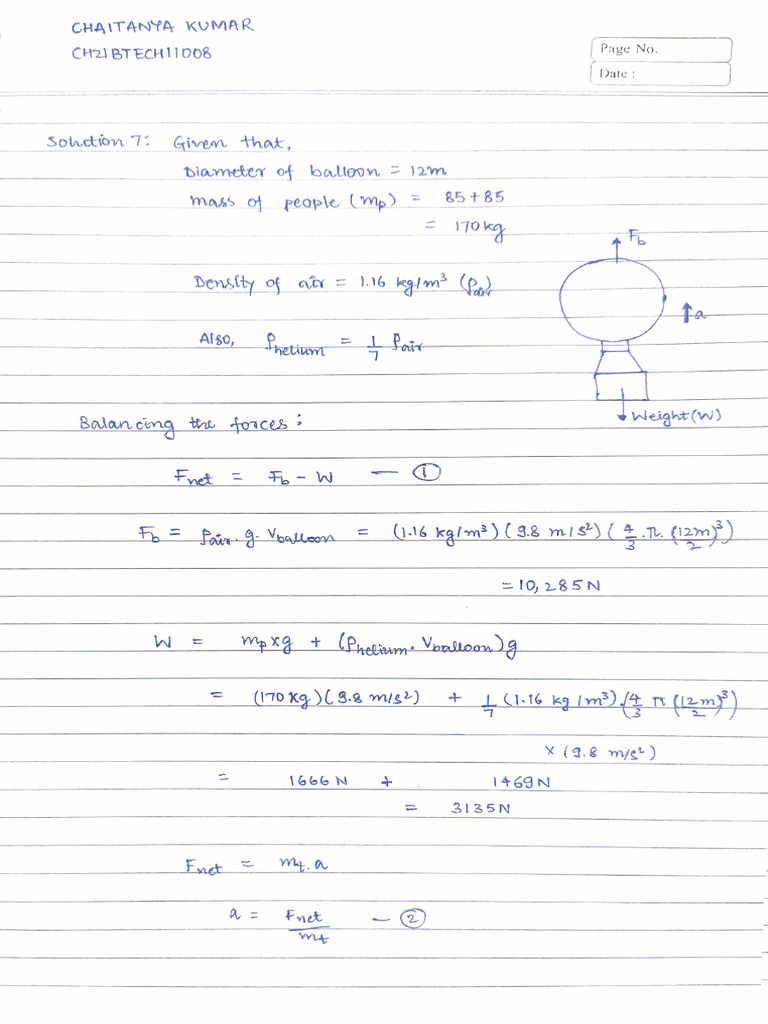 CHAITANYA KUMAR
CH21BTECH11008
Page No.
Date :
Solution 7: Given that,
Diameter of balloon = 12m
mass of people (mp) = 85+85
= 170kg
Fb
Density of air = 1.16 kg/m³ (ρair)
a
Also, ρhelium = 1/7 ρair
Weight(W)
Balancing the forces :
Fnet = Fb - W — ①
Fb = ρair. g. Vballoon = (1.16 kg/m³) (9.8 m/s²) (4/3 . π. (12m/2)³)
= 10,285N
W = mp×g + (ρhelium. Vballoon)g
= (170 kg) (9.8 m/s²) + 1/7 (1.16 kg/m³).(4/3 π (12m/2)³)
× (9.8 m/s²)
= 1666N + 1469N
= 3135N
Fnet = mt. a
a = Fnet/mt — ②